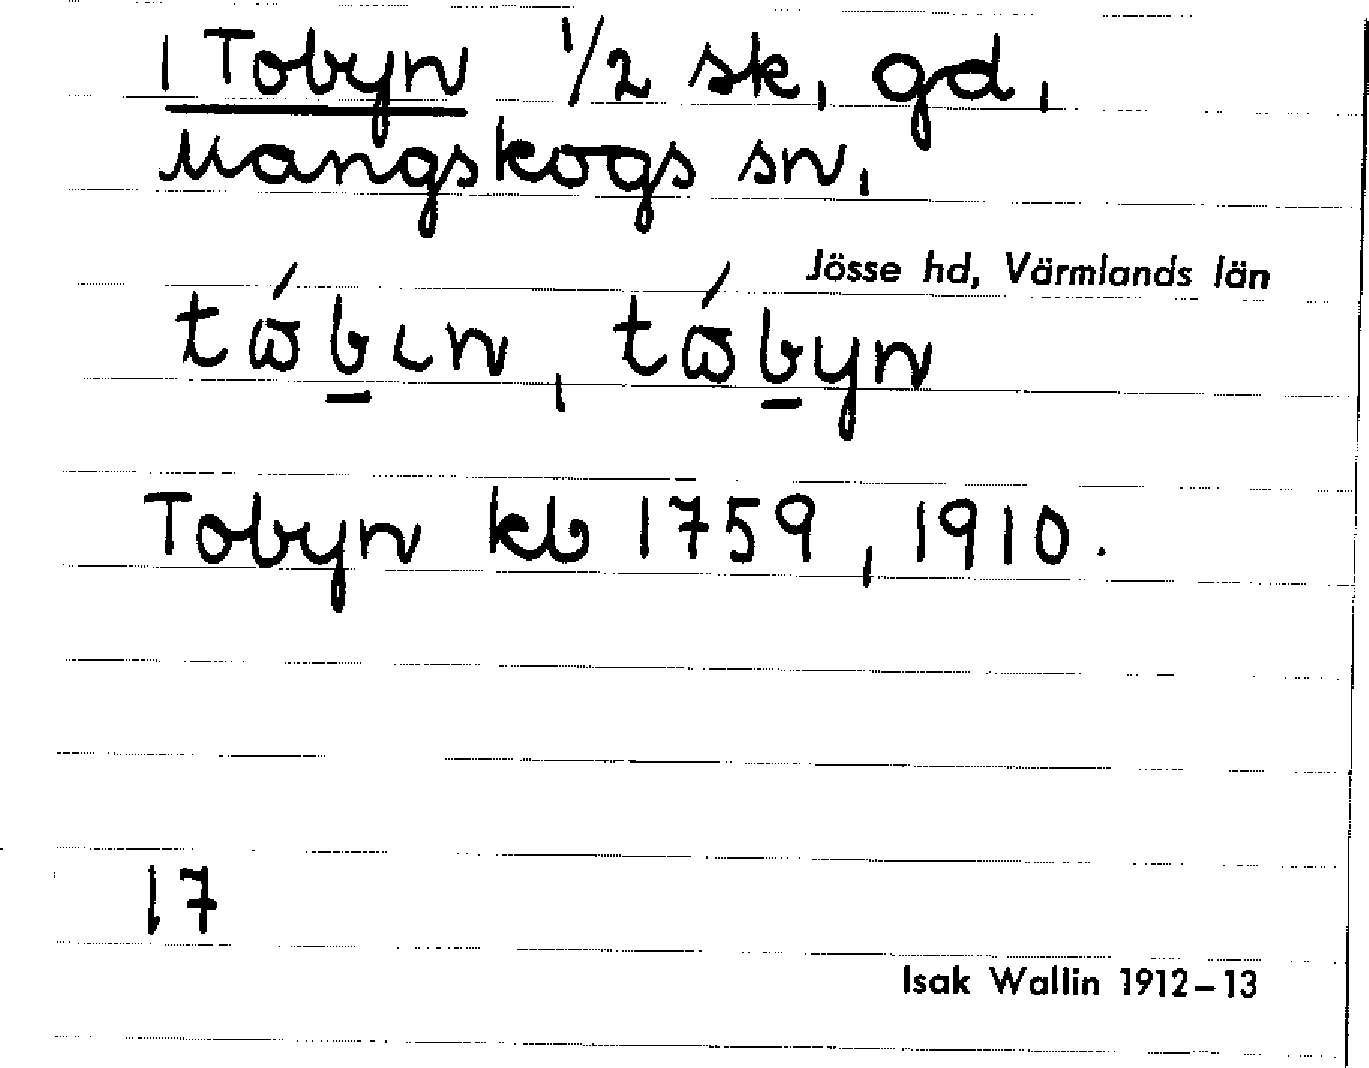 1 Tobyn 1/2 sk, gd,
Mangskogs sn,
Jösse hd, Värmlands län
tɷ́b̲ɩn, tɷ́b̲yn
Tobyn kb 1759, 1910.
17
Isak Wallin 1912–13